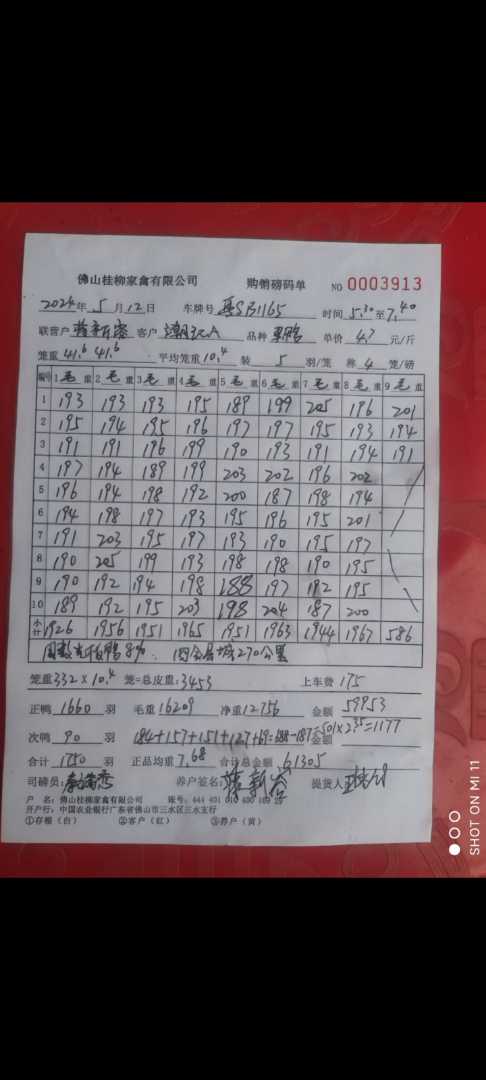 佛山桂柳家禽有限公司 购销磅码单 NO 0003913
2024年 5 月 12 日 车牌号 粤SB1165 时间 5.30 至 7.40
联营户 客户 潮记A 品种 单价 4.7 元/斤
笼重 41.6 41.6 平均笼重 10.4 装 5 羽/笼 称 4 笼/磅
编号 1毛重 2毛重 3毛重 4毛重 5毛重 6毛重 7毛重 8毛重 9毛重
1 193 193 193 195 189 199 205 196 201
2 195 194 195 196 197 197 195 193 194
3 191 191 196 199 190 193 191 194 191
4 197 194 189 199 203 202 196 202
5 196 194 198 192 200 187 198 194
6 194 198 197 193 195 196 195 201
7 191 203 195 197 193 190 195 197
8 190 205 199 193 198 198 190 195
9 190 192 194 198 188 197 192 195
10 189 192 195 203 198 204 187 200
小计 1926 1956 1951 1965 1951 1963 1944 1967 586
270公里
笼重 332×10.4 笼=总皮重:3453 上车费 175
正鸭 1660 羽 毛重 16209 净重 12756 金额 59953
次鸭 90 羽 184+157+151+127+69=688-187=501×2.35=1177 金额
合计 1750 羽 正品均重 7.68 合计总金额 61305
司磅员: 养户签名: 提货人
户 名:佛山桂柳家禽有限公司 账号:
开户行:中国农业银行广东省佛山市三水区三水支行
①存根(白) ②客户(红) ③养户(黄)
SHOT ON MI 11